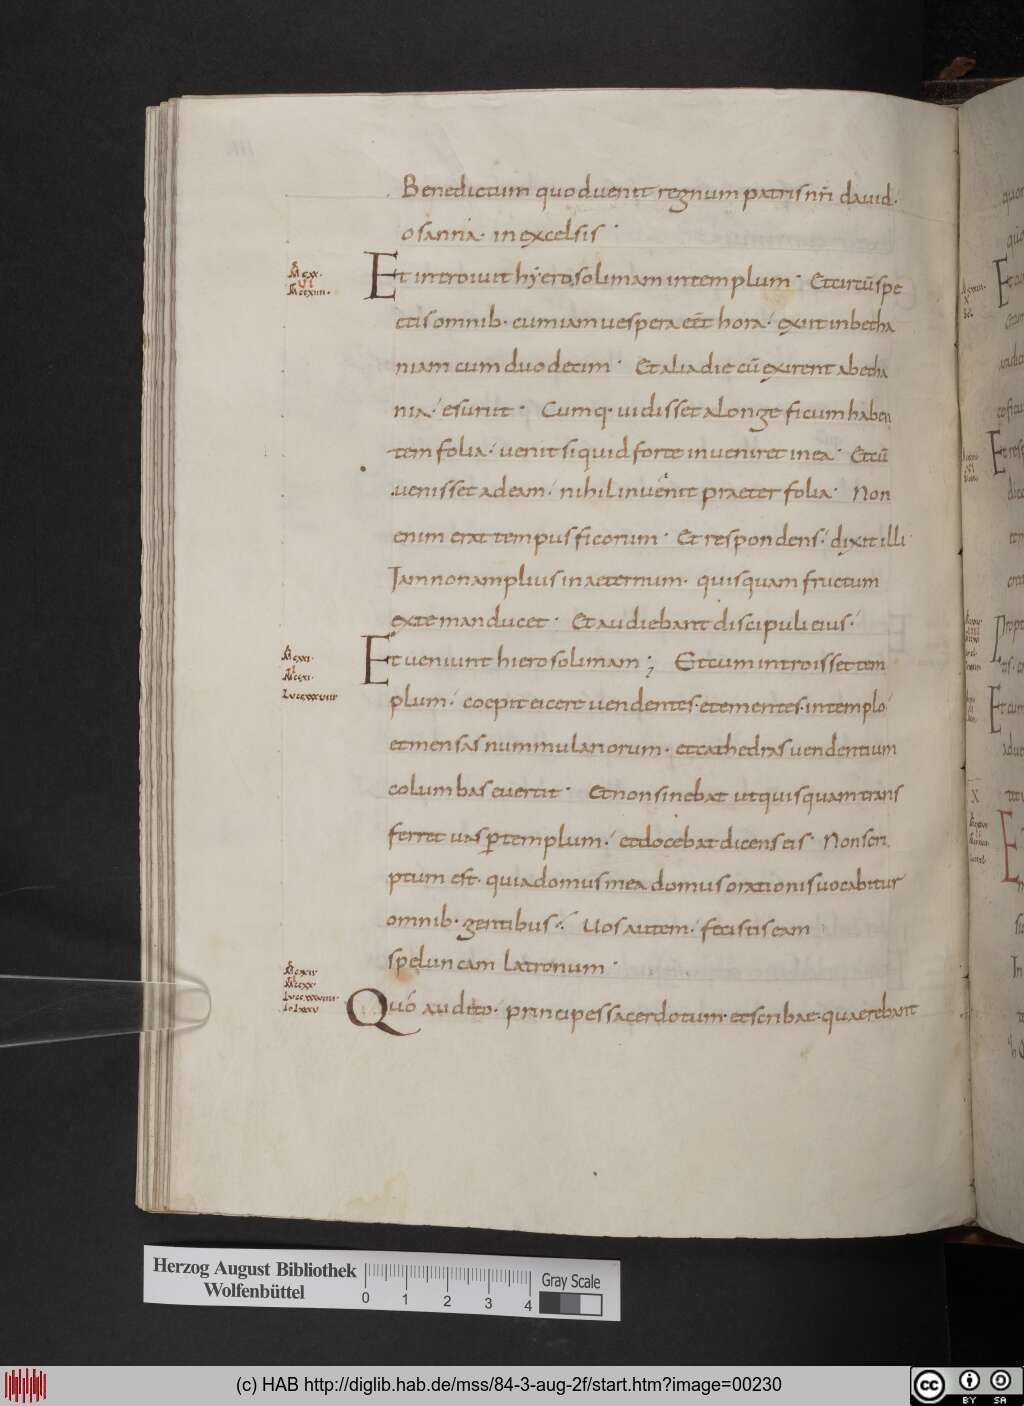 Benedictum quod venit regnum patris nr̄i david.
osanna. in excelsis
Et introivit hyerosolimam in templum. Et circū spe
ctis omnib. cum iam vespera eēt hora. exiit in betha
niam cum duodecim. Et alia die cū exirent a betha
nia. esuriit. Cumq. vidisset a longe ficum haben
tem folia. venit si quid forte inveniret in ea. Et cū
venisset ad eam. nihil invenit praeter folia. Non
enim erat tempus ficorum. Et respondens. dixit illi
Iam non amplius in aeternum. quisquam fructum
ex te manducet. Et audiebant discipuli eius.
Et veniunt hierosolimam; Et cum introisset tem
plum. coepit eicere vendentes. et ementes. in templo
et mensas nummulariorum. et cathedras vendentium
columbas evertit. Et non sinebat ut quisquam trans
ferret vas p templum. et docebat dicens eis. Non scri
ptum est. quia domus mea domus orationis vocabitur
omnib. gentibus. Vos autem. fecistis eam
speluncam latronum.
Quó audito. principes sacerdotum. et scribae. quaerebant
Herzog August Bibliothek
Wolfenbüttel
0 1 2 3 4
Gray Scale
(c) HAB http://diglib.hab.de/mss/84-3-aug-2f/start.htm?image=00230
cc BY SA